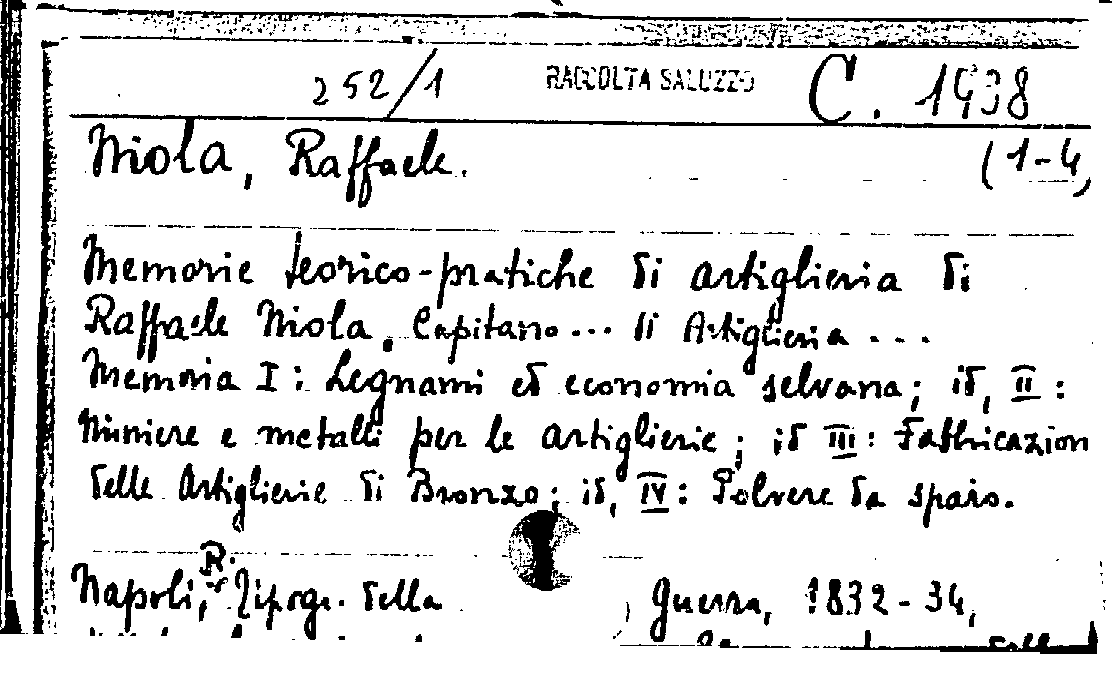 252/1 RACCOLTA SALUZZO C. 1938
Niola, Raffaele. (1-4)
Memorie teorico-pratiche di artiglieria di
Raffaele Niola, Capitano... di Artiglieria ...
Memoria I: Legnami ed economia selvana; id, II:
Miniere e metalli per le artiglierie; id III: Fabbricazion
delle Artiglierie di Bronzo; id, IV: Polvere da sparo.
Napoli, R. Tipogr. della Guerra, 1832-34,